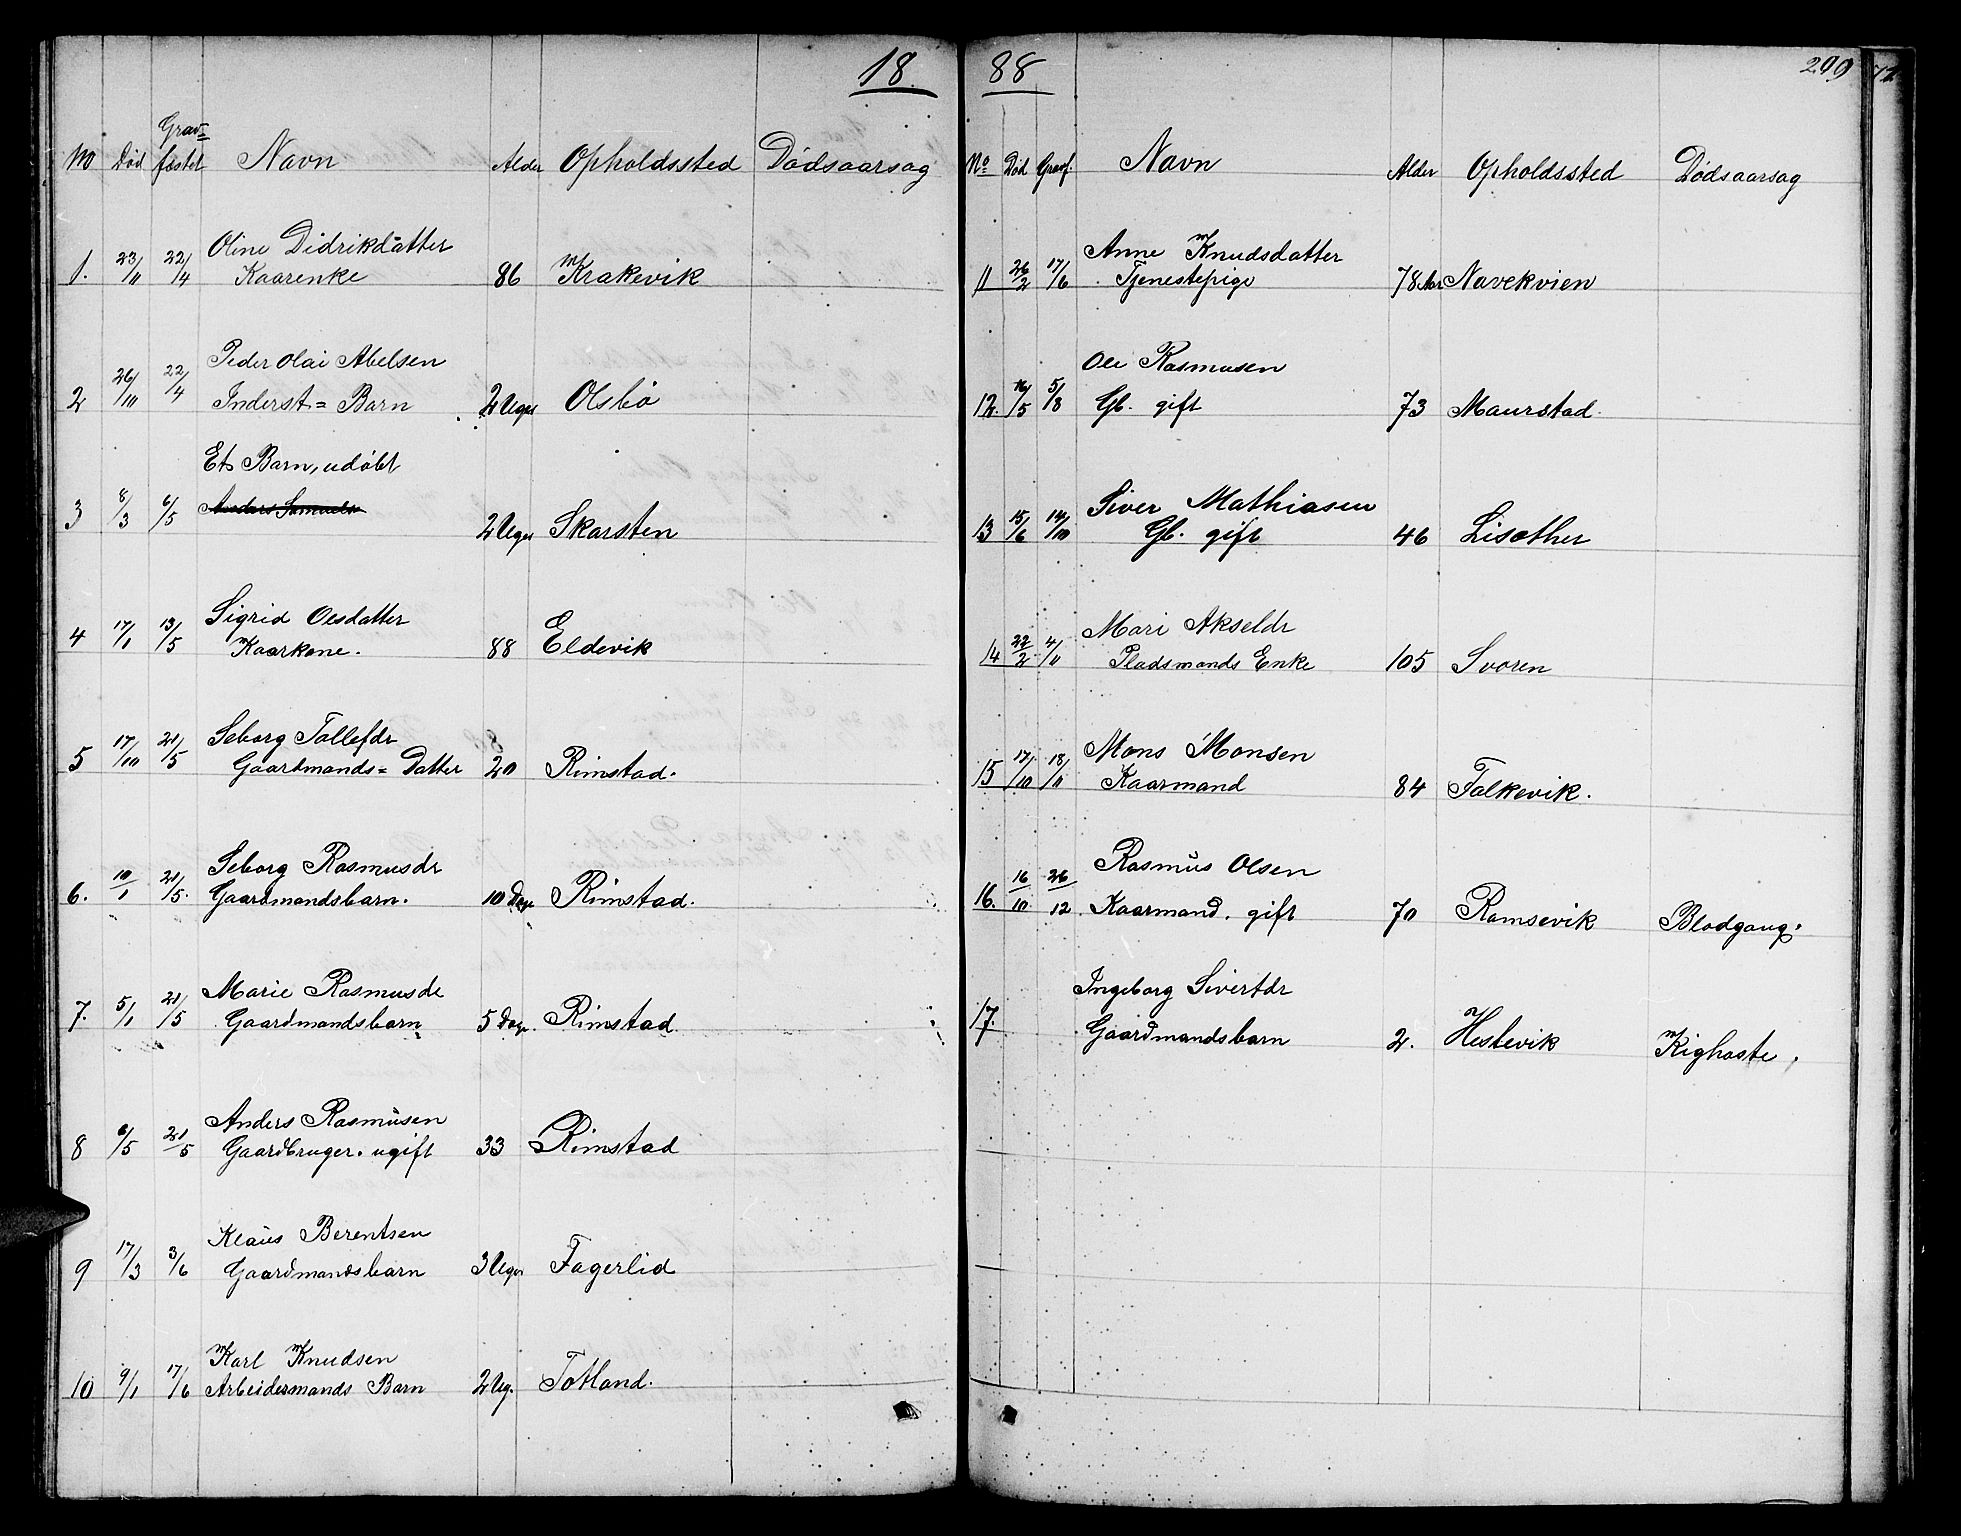 18
88
299
No Død Grav=fæstet Navn Alder Opholdssted Dødsaarsag
1. 23/11 22/4 Oline Didrikdatter 
Kaarenke 86 Krakevik
2 26/11 22/4 Peder Olai Abelsen
Inderst= Barn 2 Uger Olsbø
3 8/3 6/5 Et Barn, udøbt
2 Uger Skarsten
4 17/1 13/5 Sigrid Olsdatter
Kaarkone. 88 Eldevik
5 17/10 21/5 Seborg Tollefdr
Gaardmands= Datter 20 Rimstad.
6. 10/1 21/5. Seborg Rasmusdr
Gaardmandsbarn. 10 Dage Rimstad.
7. 5/1 21/5 Marie Rasmusdr
Gaardmandsbarn 5 Dage. Rimstad.
8 6/5 21/5 Anders Rasmusen
Gaardbruger. ugift 33 Rimstad
9 17/3 3/6 Klaus Berentsen
Gaardmandsbarn 3 Uger Fagerlid
10 9/1 17/6 Karl Knudsen
Arbeidermands Barn 2 Ug. Totland.
No Død Gravf. Navn Alder Opholdssted Dødsaarsag
11 26/2 17/6 Anne Knudsdatter
Tjenestepige 78 Aar Navekvien
12. 16/5 5/8 Ole Rasmusen
Gb. gift 73 Maurstad.
13 15/6 14/10 Siver Mathiasen
Gb. gift 46 Lisæther
14 22/2 4/11 Mari Akseldr
Pladsmands Enke 105 Svoren
15 17/10 18/11 Mons Monsen
Kaarmand 84 Falkevik.
16. 16/10 26/12 Rasmus Olsen
Kaarmand. gift 70 Ramsevik Blodgang.
17. Ingeborg Sivertdr
Gaardmandsbarn 2. Hestevik Kighoste.